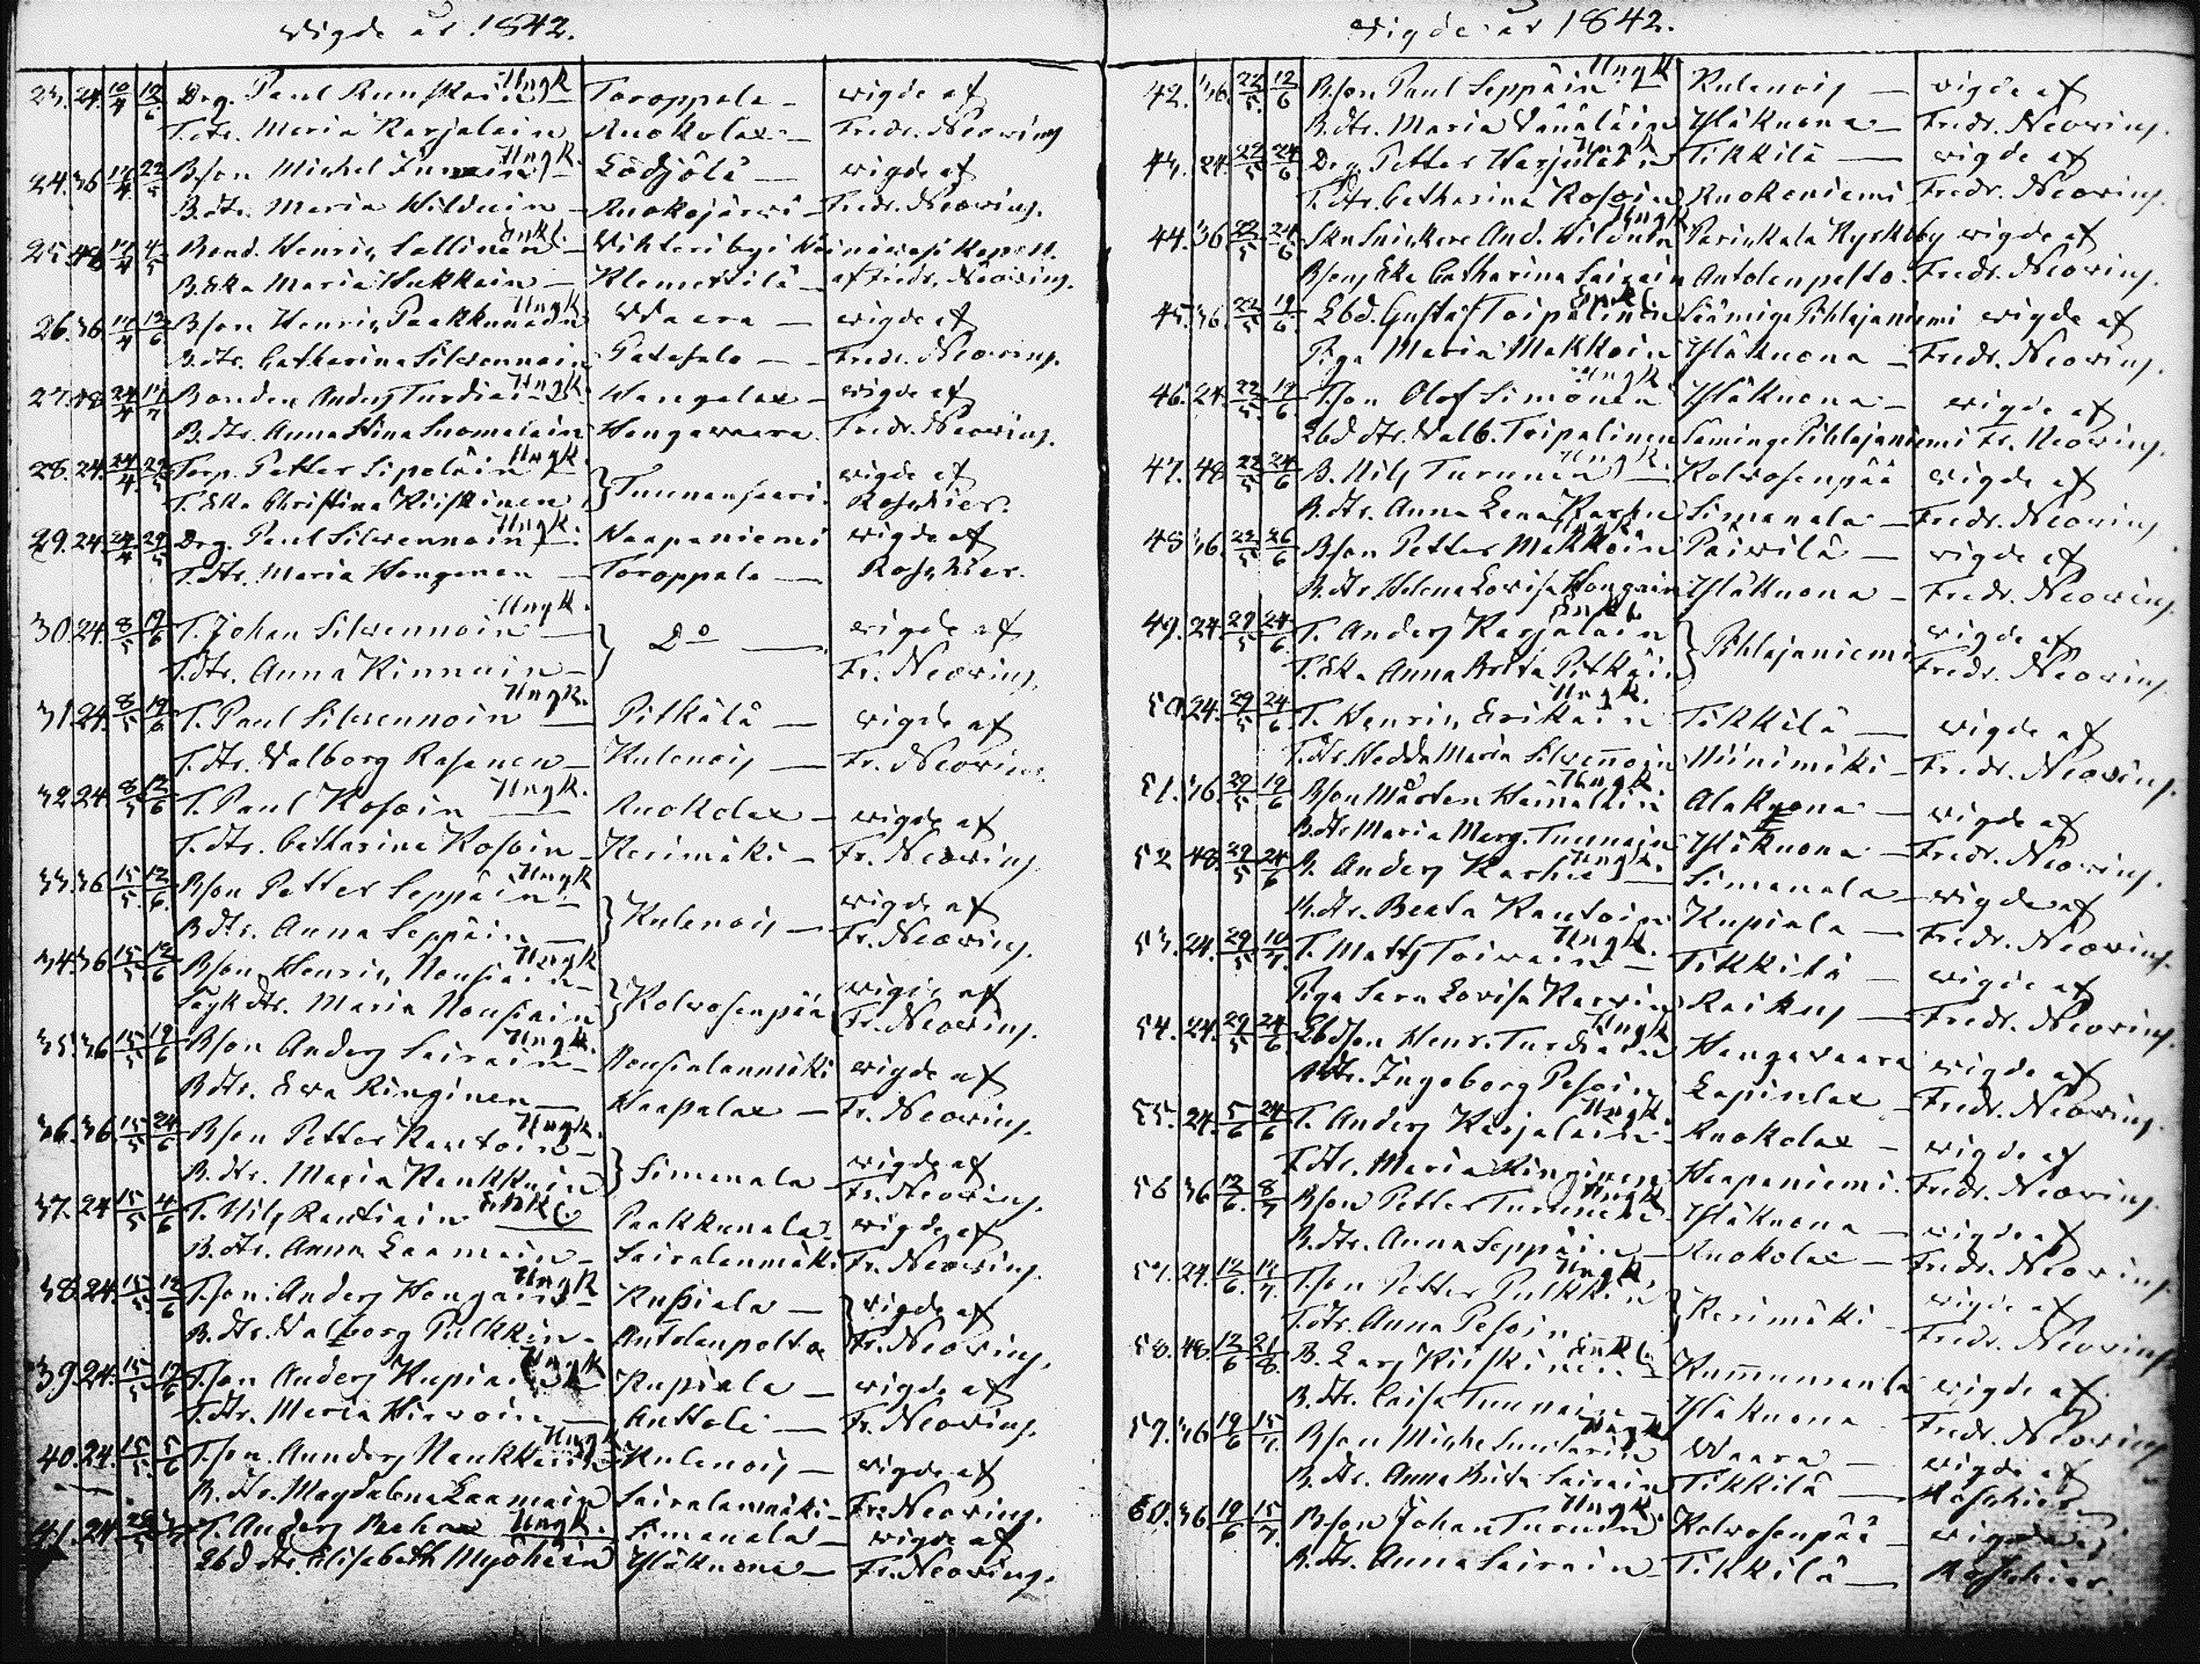 Wigde år 1842.
23. 24. 10/4 12/6 Drg. Paul Ruuskain Ungk. Toroppala wigde af
T.dtr. Maria Karjalain Ruokolax Fredr. Neovius
24. 36 17/4 22/5 Bson Michel Immoin Ungk. wigde af
B.dtr. Maria Hilduin Ruokojärwi Fredr. Neovius.
25 48 17/4 4/5 Bond. Henric Sallinen Enkl. Wihteriby i Heinäwesi Kapell.
B.Eka Maria Hukkain Klemettilä af Fredr. Neovius.
26. 36. 17/4 12/6 Bson Henric Paakkunain Ungk Waara wigde af
B.dtr. Catharina Silvennoin Patasalo Fredr. Neovius.
27. 48 24/4 17/7 Bonden Anders Turdiain Ungk. Hangelax wigde af
B.dtr. Anna Stina Suomalain Hengawaara Fredr. Neovius.
28. 24. 24/4 29/5 Torp. Petter Sipoläin Ungk. Tuunansaari wigde af
T.Eka Christina Kiiskinen Roschier.
29. 24. 24/4 29/5 Drg. Paul Silvennoin Ungk. Haapaniemi wigde af
T.dtr. Maria Hongonen Toroppala Roschier.
30. 24. 8/5 19/6 T. Johan Silvennoin Ungk. Do wigde af
T.dtr. Anna Kinnuin Fr. Neovius.
31. 24. 8/5 19/6 T. Paul Silvennoin Ungk. Pitkälä wigde af
T.dtr. Walborg Rasanen Kulenois Fr. Neovius.
32. 24. 8/5 12/6 T. Paul Kosoin Ungk. Ruokolax wigde af
T.dtr. Catharina Kosoin Kerimäki Fr. Neovius
33. 36 15/5 12/6 Bson Petter Seppäin Ungk Kulenois wigde af
B.dtr. Anna Seppäin Fr. Neovius.
34. 36 15/5 12/6 Bson Henric Nousiain Ungk Kolwosenpää wigde af
dtr. Maria Nousiain Fr. Neovius.
35. 36 15/5 19/6 Bson Anders Sairain Ungk. Nousialanmäki wigde af
B.dtr. Ewa Ringinen Haapalax Fr. Neovius.
36. 36. 15/5 24/6 Bson Petter Rautoin Ungk. Simanala wigde af
B.dtr. Maria Kankkuin Fr. Neovius.
37. 24 15/5 4/6 T. Nils Rautiain Enkl. Paakkunala wigde af
B.dtr. Anna Laamain Sairalanmäki Fr. Neovius.
38. 24. 15/5 12/6 T.son Anders Hongain Ungk Kupiala wigde af
B.dtr. Walborg Pulkkin Autolanpelto Fr. Neovius.
39. 24. 15/5 12/6 T.son Anders Kupiain Ungk Kupiala wigde af
T.dtr. Maria Hirvoin Anttola Fr. Neovius.
40. 24. 15/5 5/6 T.son Annders Naukkarin Ungk Kulenois wigde af
B.dtr. Magdalena Laamain Sairalanmäki Fr. Neovius.
41. 24 T. Anders Ungk. Simanala wigde af
Lbd dtr. Elisabeth Myöhäin Yläkuona Fr. Neovius.
Wigde år 1842.
42. 36. 22/5 12/6 Bson Paul Seppäin Ungk Kulenois wigde af
B.dtr. Maria Wänäläin Yläkuona Fredr. Neovius.
43. 24. 22/5 24/6 Drg. Petter Karjalain Ungk Tikkilä wigde af
T.dtr. Catharina Kosoin Ruokoniemi Fredr. Neovius.
44. 36 22/5 24/6 Skn Snickare And. Hilduin Ungk Parikala Nyskoby wigde af
Bsons Eka Catharina Sairain Autolanpelto Fredr. Neovius.
45. 36. 22/5 19/6 Lbd. Gustaf Toipalinen Enkl. Säämige Pihlajaniemi wigde af
Piga Maria Makkoin Yläkuona Fredr. Neovius.
46. 24. 22/5 19/6 T.son Olof Simonen Ungk. Yläkuona wigde af
Lbd dtr. Walb. Toipalinen Säminge Pihlajaniemi Fr. Neovius.
47. 48 22/5 24/6 B. Nils Turunen Ungk. Kolwosenpää wigde af
B.dtr. Anna Lena Karhu Simanala Fredr. Neovius
48 36. 22/5 26/6 Bson Petter Makkoin Ungk Päiwilä wigde af
B.dtr. Helena Lovisa Hongain Yläkuona Fredr. Neovius.
49. 24. 29/5 24/6 T. Anders Karjalain Enkl. Pihlajaniemi wigde af
T.Eka Anna Brita Pitkäin Fredr. Neovius.
50. 24. 29/5 24/6 T. Henric Erikäin Ungk. Tikkilä wigde af
T.dtr. Hedda Maria Silvennoin Niinimäki Fredr. Neovius.
51. 36. 29/5 19/6 Bson Mårten Hämäläin Ungk Alakuona wigde af
B.dtr Maria Marg. Tuunain Yläkuona Fredr. Neovius.
52 48. 29/5 24/6 B. Anders Karhu Ungk. Simanala wigde af
B.dtr. Beata Rautoin Kupiala Fredr. Neovius.
53. 24. 29/5 10/7 T. Matts Toiwain Ungk. Tikkilä wigde af
Piga Sara Lovisa Raikus Fredr. Neovius.
54. 24. 29/5 24/6 Lbdson Henr. Turdiain Ungk Hangawaara wigde af
B.dtr. Ingeborg Pesoin Lapinlax Fredr. Neovius.
55. 24. 5/6 24/6 T. Anders Karjalain Ungk. Ruokolax wigde af
T.dtr. Maria Ringinen Haapaniemi. Fredr. Neovius.
56 36 12/6 8/7 Bson Petter Turunen Ungk Yläkuona wigde af
B.dtr. Anna Seppäin Ruokolax Fredr. Neovius
57. 24. 12/6 17/7 T.son Petter Pulkkin Ungk. Kerimäki wigde af
T.dtr. Anna Pesoin Fredr. Neovius
58. 48 12/6 21/8 B. Lars Kiiskinen Enkl. Kummunmäki wigde af
B.dtr. Caisa Tuunain Yläkuona Fredr. Neovius
59. 36 19/6 15/7 Bson Michel Ungk Waara wigde af
B.dtr. Anna Brita Sairain Tikkilä Roschier
60. 36 19/6 15/7 Bson Johan Turunen Ungk. Kolwosenpää wigde af
B.dtr. Anna Sairain Tikkilä Roschier.